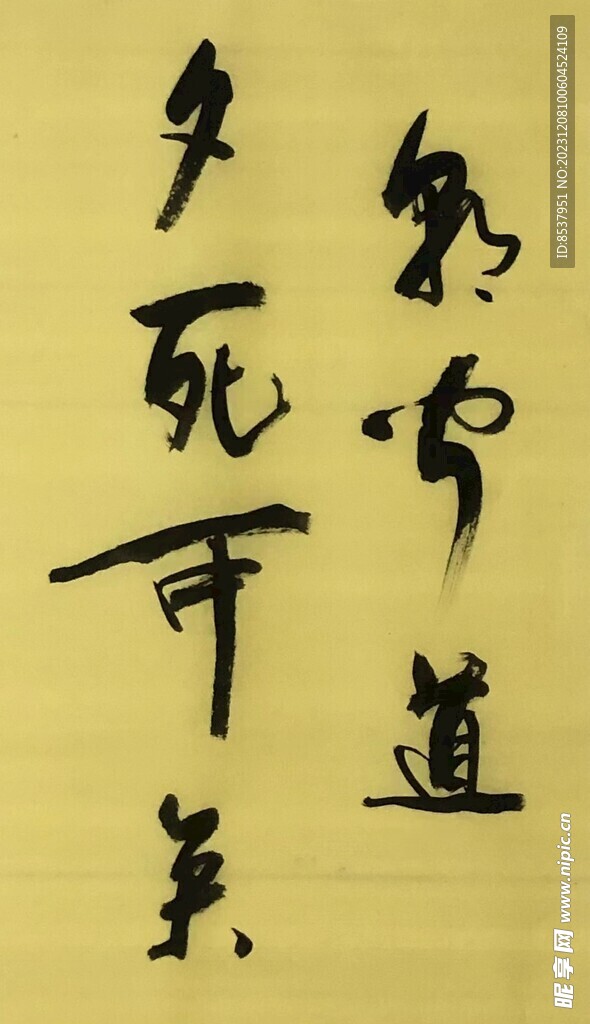 朝闻道
夕死可矣
ID:8537951 NO:20231208100604524109
昵享网 www.nipic.cn